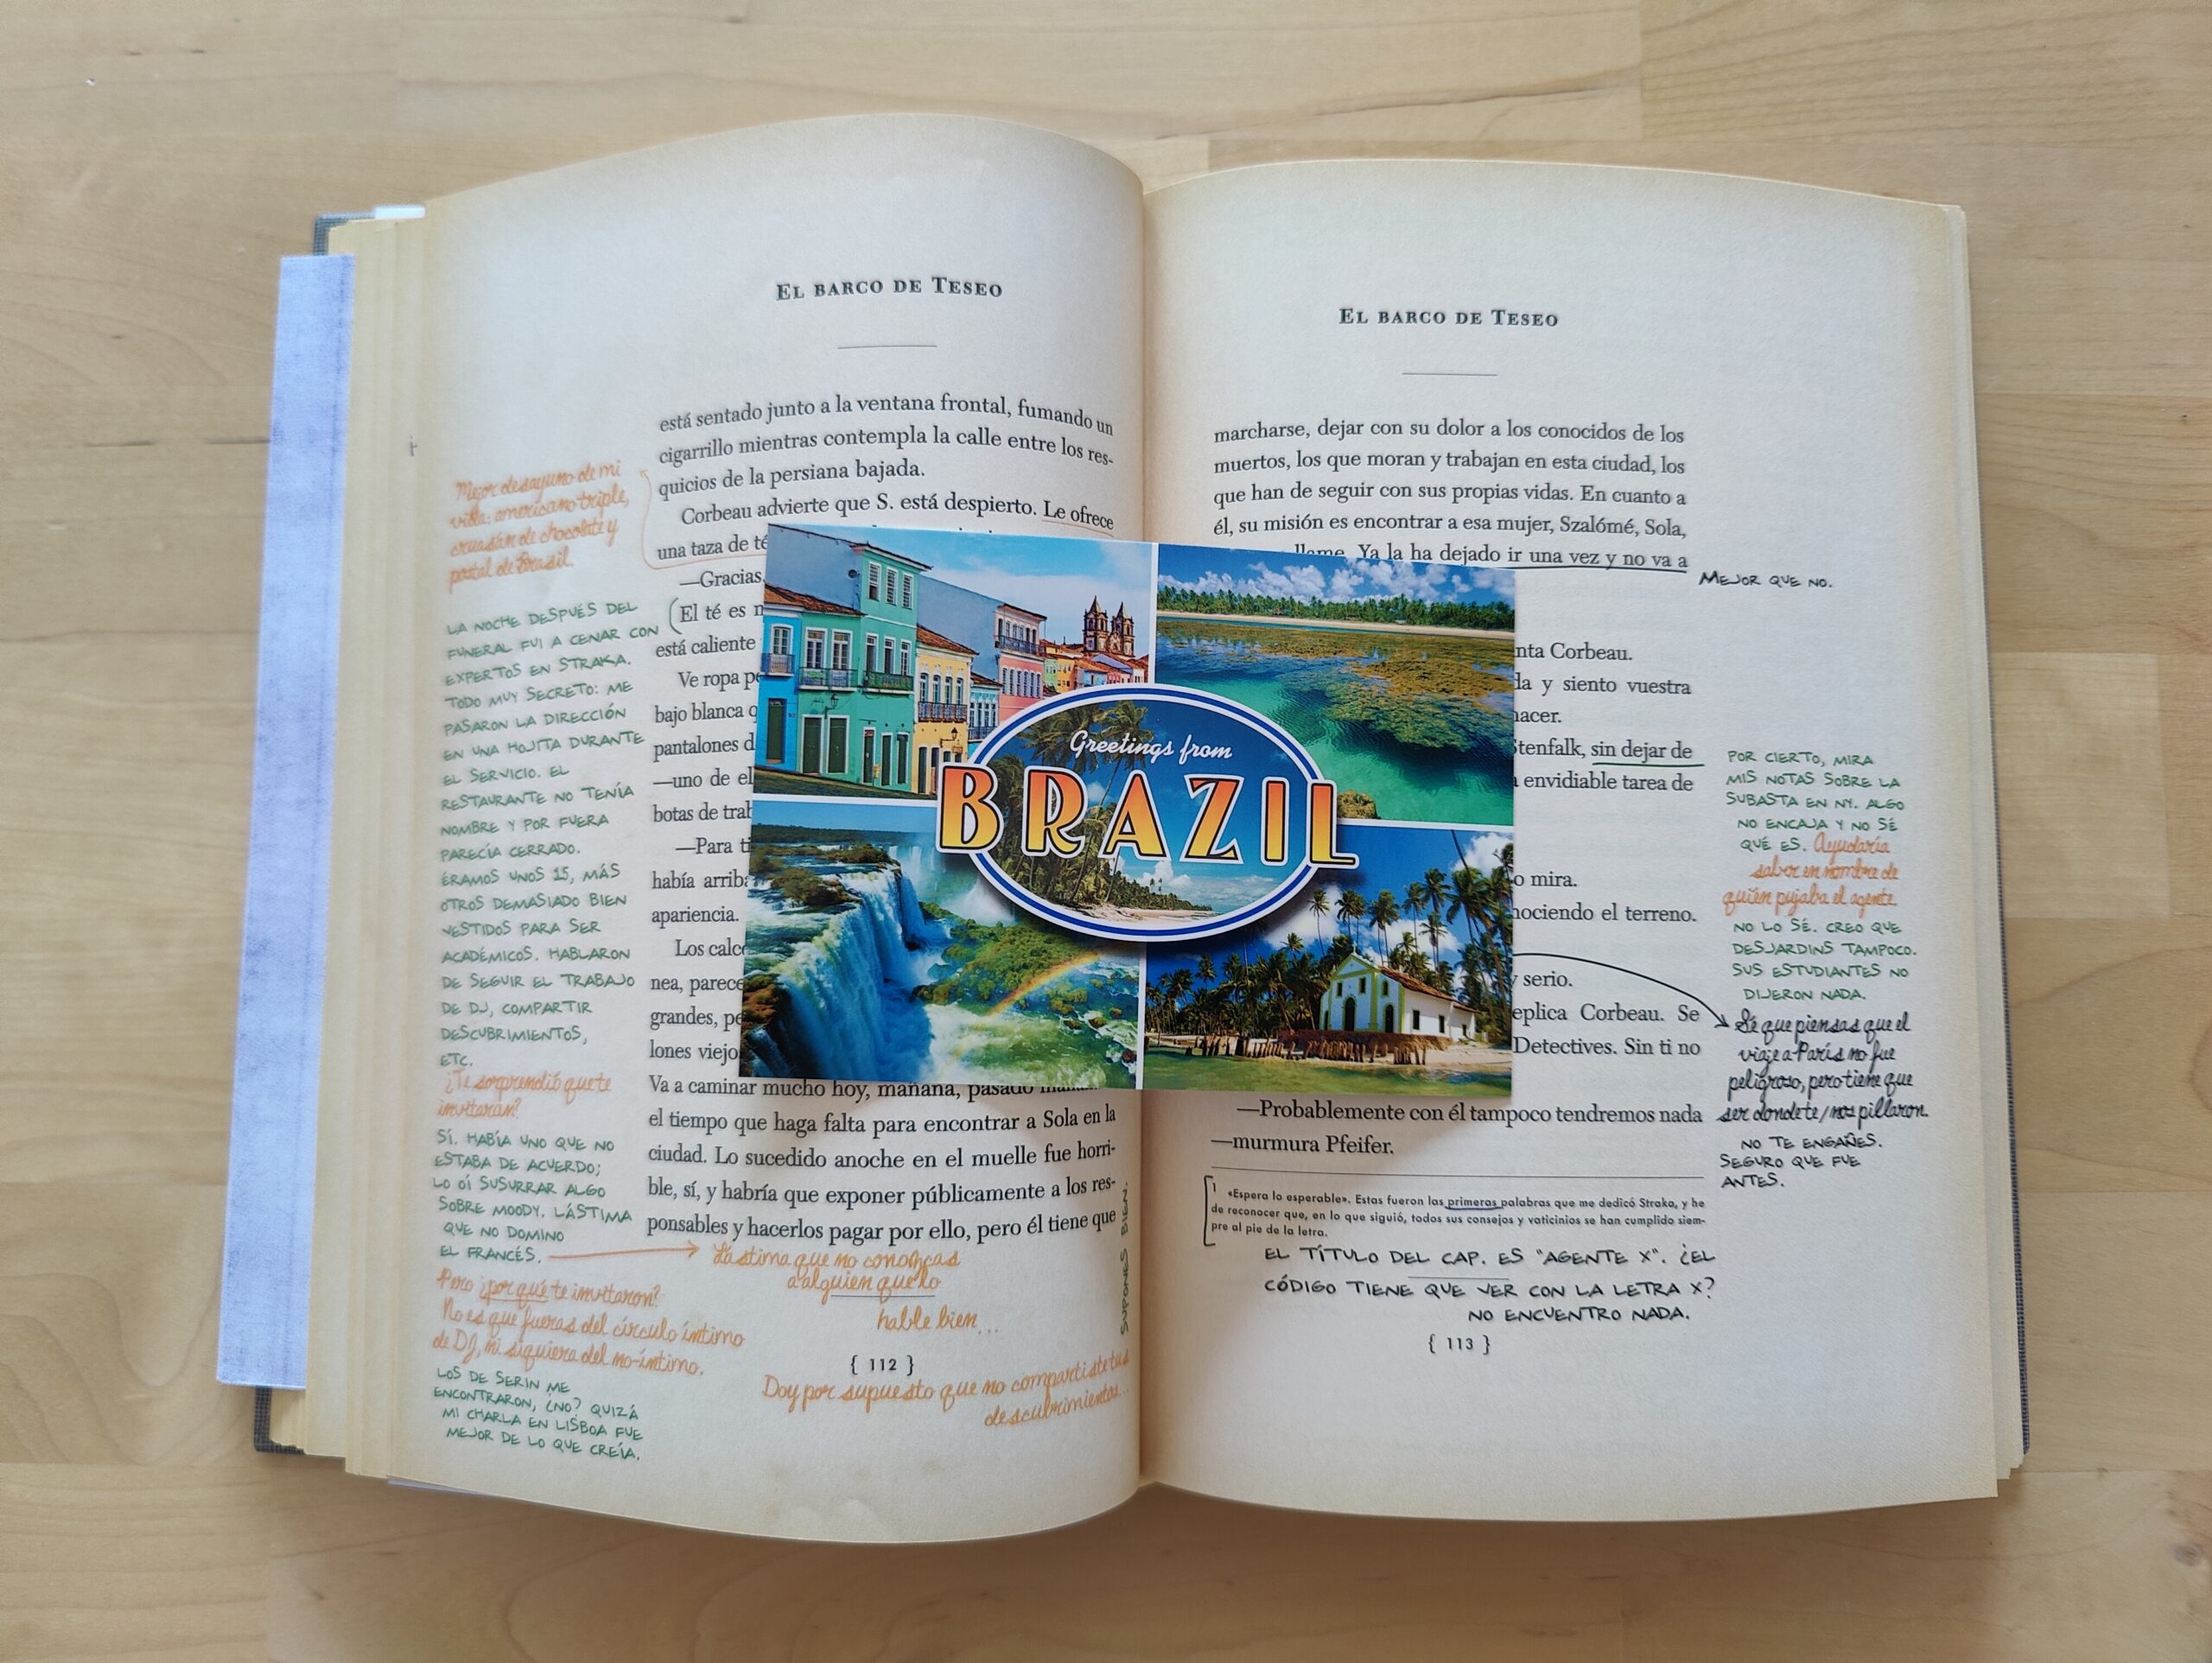 EL BARCO DE TESEO
está sentado junto a la ventana frontal, fumando un
cigarrillo mientras contempla la calle entre los res-
quicios de la persiana bajada.
Corbeau advierte que S. está despierto. Le ofrece
una taza de té
—Gracias.
El té es
está caliente
Ve ropa
bajo blanca
pantalones
—uno de
botas de
—Para
había
apariencia.
Los
nea,
grandes,
lones
Va a caminar mucho hoy, mañana, pasado
el tiempo que haga falta para encontrar a Sola en la
ciudad. Lo sucedido anoche en el muelle fue horri-
ble, sí, y habría que exponer públicamente a los res-
ponsables y hacerlos pagar por ello, pero él tiene que
{ 112 }
Mejor desayuno de mi
vida: americano triple,
cruasán de chocolate y
postal de Brasil.
LA NOCHE DESPUÉS DEL
FUNERAL FUI A CENAR CON
EXPERTOS EN STRAKA.
TODO MUY SECRETO: ME
PASARON LA DIRECCIÓN
EN UNA HOJITA DURANTE
EL SERVICIO. EL
RESTAURANTE NO TENÍA
NOMBRE Y POR FUERA
PARECÍA CERRADO.
ÉRAMOS UNOS 15, MÁS
OTROS DEMASIADO BIEN
VESTIDOS PARA SER
ACADÉMICOS. HABLARON
DE SEGUIR EL TRABAJO
DE DJ, COMPARTIR
DESCUBRIMIENTOS,
ETC.
¿Te sorprendió que te
invitaran?
SÍ. HABÍA UNO QUE NO
ESTABA DE ACUERDO;
LO OÍ SUSURRAR ALGO
SOBRE MOODY. LÁSTIMA
QUE NO DOMINO
EL FRANCÉS.
Lástima que no conozcas
a alguien que lo
hable bien...
Pero ¿por qué te invitaron?
No es que fueras del círculo íntimo
de DJ, ni siquiera del no-íntimo.
LOS DE SERIN ME
ENCONTRARON, ¿NO? QUIZÁ
MI CHARLA EN LISBOA FUE
MEJOR DE LO QUE CREÍA.
Doy por supuesto que no compartiste tus
descubrimientos...
SUPONES BIEN.
Greetings from
BRAZIL
EL BARCO DE TESEO
marcharse, dejar con su dolor a los conocidos de los
muertos, los que moran y trabajan en esta ciudad, los
que han de seguir con sus propias vidas. En cuanto a
él, su misión es encontrar a esa mujer, Szalómé, Sola,
llame. Ya la ha dejado ir una vez y no va a
Corbeau.
y siento vuestra
Stenfalk, sin dejar de
envidiable tarea de
mira.
el terreno.
serio.
Corbeau. Se
Detectives. Sin ti no
—Probablemente con él tampoco tendremos nada
—murmura Pfeifer.
1 «Espera lo esperable». Estas fueron las primeras palabras que me dedicó Straka, y he
de reconocer que, en lo que siguió, todos sus consejos y vaticinios se han cumplido siem-
pre al pie de la letra.
EL TÍTULO DEL CAP. ES "AGENTE X". ¿EL
CÓDIGO TIENE QUE VER CON LA LETRA X?
NO ENCUENTRO NADA.
{ 113 }
MEJOR QUE NO.
POR CIERTO, MIRA
MIS NOTAS SOBRE LA
SUBASTA EN NY. ALGO
NO ENCAJA Y NO SÉ
QUÉ ES. Ayudaría
saber en nombre de
quién pujaba el agente.
NO LO SÉ. CREO QUE
DESJARDINS TAMPOCO.
SUS ESTUDIANTES NO
DIJERON NADA.
Sé que piensas que el
viaje a París no fue
peligroso, pero tiene que
ser donde te/nos pillaron.
NO TE ENGAÑES.
SEGURO QUE FUE
ANTES.